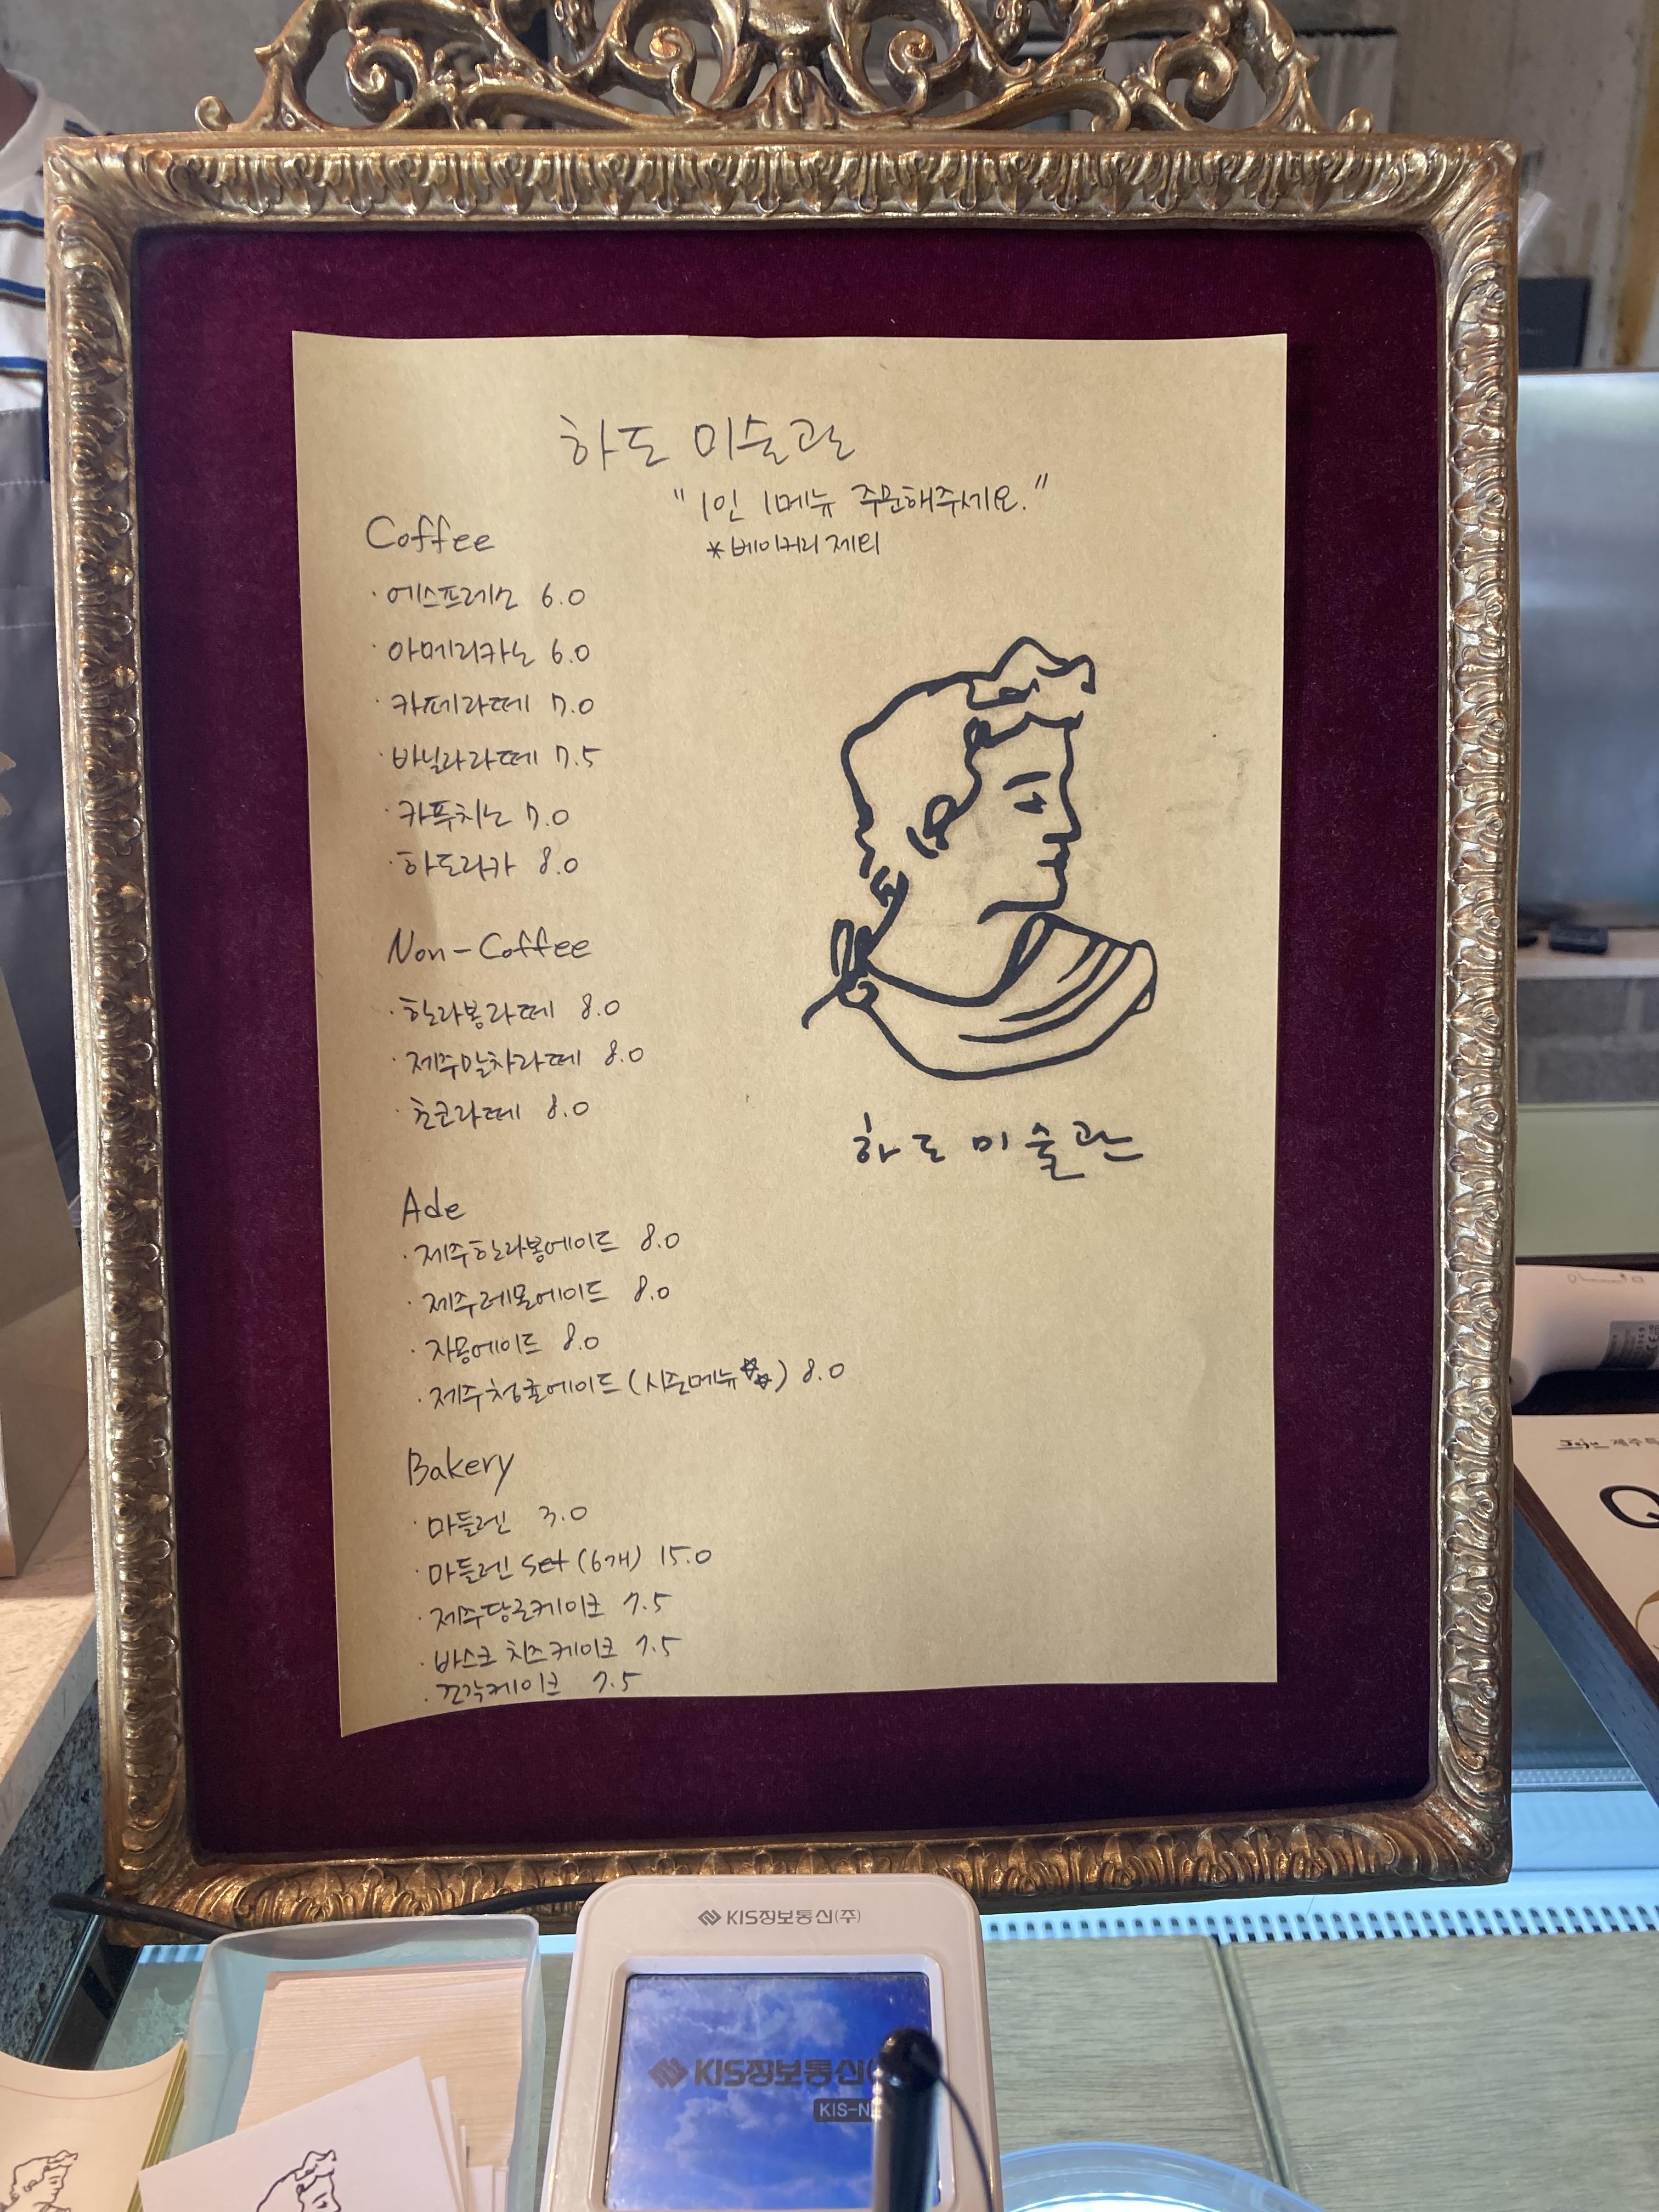 하도 미술관
"1인 1메뉴 주문해주세요."
*베이커리 제외
Coffee
· 에스프레소 6.0
· 아메리카노 6.0
· 카페라떼 7.0
· 바닐라라떼 7.5
· 카푸치노 7.0
· 하도라카 8.0
Non-Coffee
· 한라봉라떼 8.0
· 제주말차라떼 8.0
· 초코라떼 8.0
하도미술관
Ade
· 제주한라봉에이드 8.0
· 제주레몬에이드 8.0
· 자몽에이드 8.0
· 제주청귤에이드 (시즌메뉴☆☆) 8.0
Bakery
· 마들렌 3.0
· 마들렌 set (6개) 15.0
· 제주당근케이크 7.5
· 바스크 치즈케이크 7.5
· 조각케이크 7.5
KIS정보통신(주)
KIS정보통신(
KIS-N
Jeju 제주특
Q